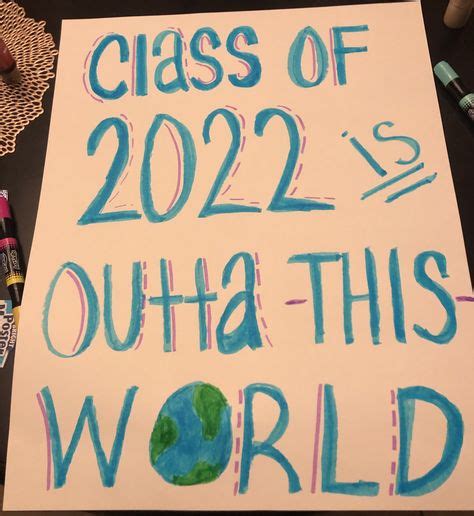 Class OF
2022 is
Outta-THIS-
WORLD
Poster